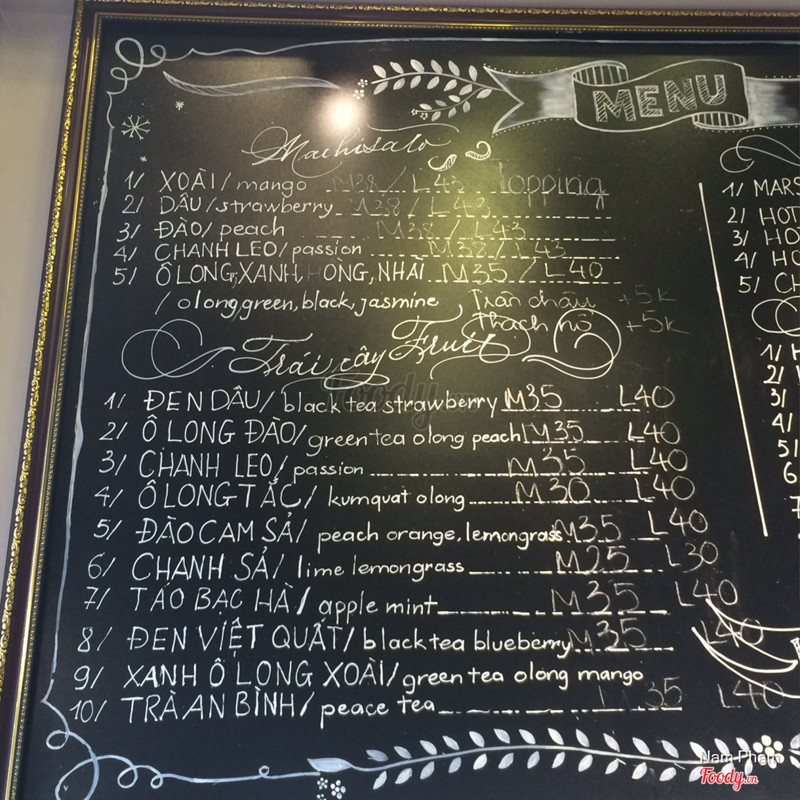 MENU
Machisato
1/ XOÀI/mango M38/L43 Topping
2/ DÂU/strawberry M38/L43
3/ ĐÀO/peach M38/L43
4/ CHANH LEO/passion M38/L43
5/ Ô LONG, XANH, HỒNG, NHÀI M35/L40
/olong, green, black, jasmine Trân châu +5k
Thạch nổ +5k
Trái cây Fruit
1/ ĐEN DÂU/black tea strawberry M35 L40
2/ Ô LONG ĐÀO/green tea olong peach M35 L40
3/ CHANH LEO/passion M35 L40
4/ Ô LONG TẮC/kumquat olong M30 L40
5/ ĐÀO CAM SẢ/peach orange, lemongrass M35 L40
6/ CHANH SẢ/lime lemongrass M25 L30
7/ TÁO BẠC HÀ/apple mint M35 L40
8/ ĐEN VIỆT QUẤT/black tea blueberry M35 L40
9/ XANH Ô LONG XOÀI/green tea olong mango
10/ TRÀ AN BÌNH/peace tea M35 L40
1/ MARS
2/ HOT
3/ HO
4/ HO
5/ CH
1/ H
2/
3/
4/
5/
6
7
Foody.vn
Nam Phạm
Foody.vn